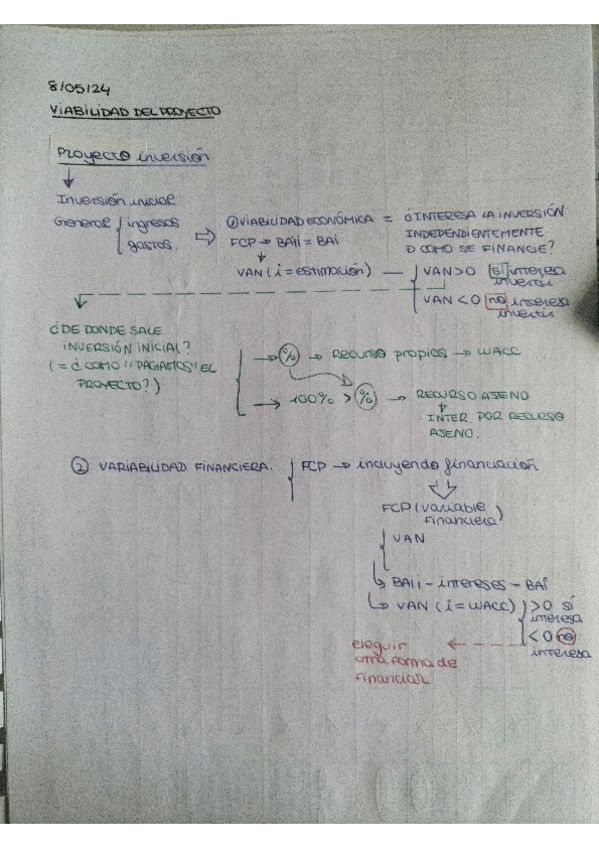 8/05/24
VIABILIDAD DEL PROYECTO
Proyecto inversión
Inversión inicial
General { ingresos
gastos.
① VIABILIDAD ECONÓMICA = ¿INTERESA LA INVERSIÓN
INDEPENDIENTEMENTE
D COMO SE FINANCIE?
FCP → BAii = BAi
VAN (i = estimación) — { VAN > 0 sí interesa
invertir
VAN < 0 no interesa
invertir
¿DE DONDE SALE
INVERSIÓN INICIAL?
(= ¿COMO "PAGAMOS" EL
PROYECTO?)
→ % → Recurso propios → WACC
→ 100% > % → RECURSO AJENO
INTER POR RECURSO
AJENO.
② VARIABILIDAD FINANCIERA. { FCP → incluyendo financiación
FCP (variable
financiera)
VAN
BAii - intereses - BAi
VAN (i = WACC) } > 0 sí
interesa
< 0 no
interesa
eleguir
otra forma de
financiar